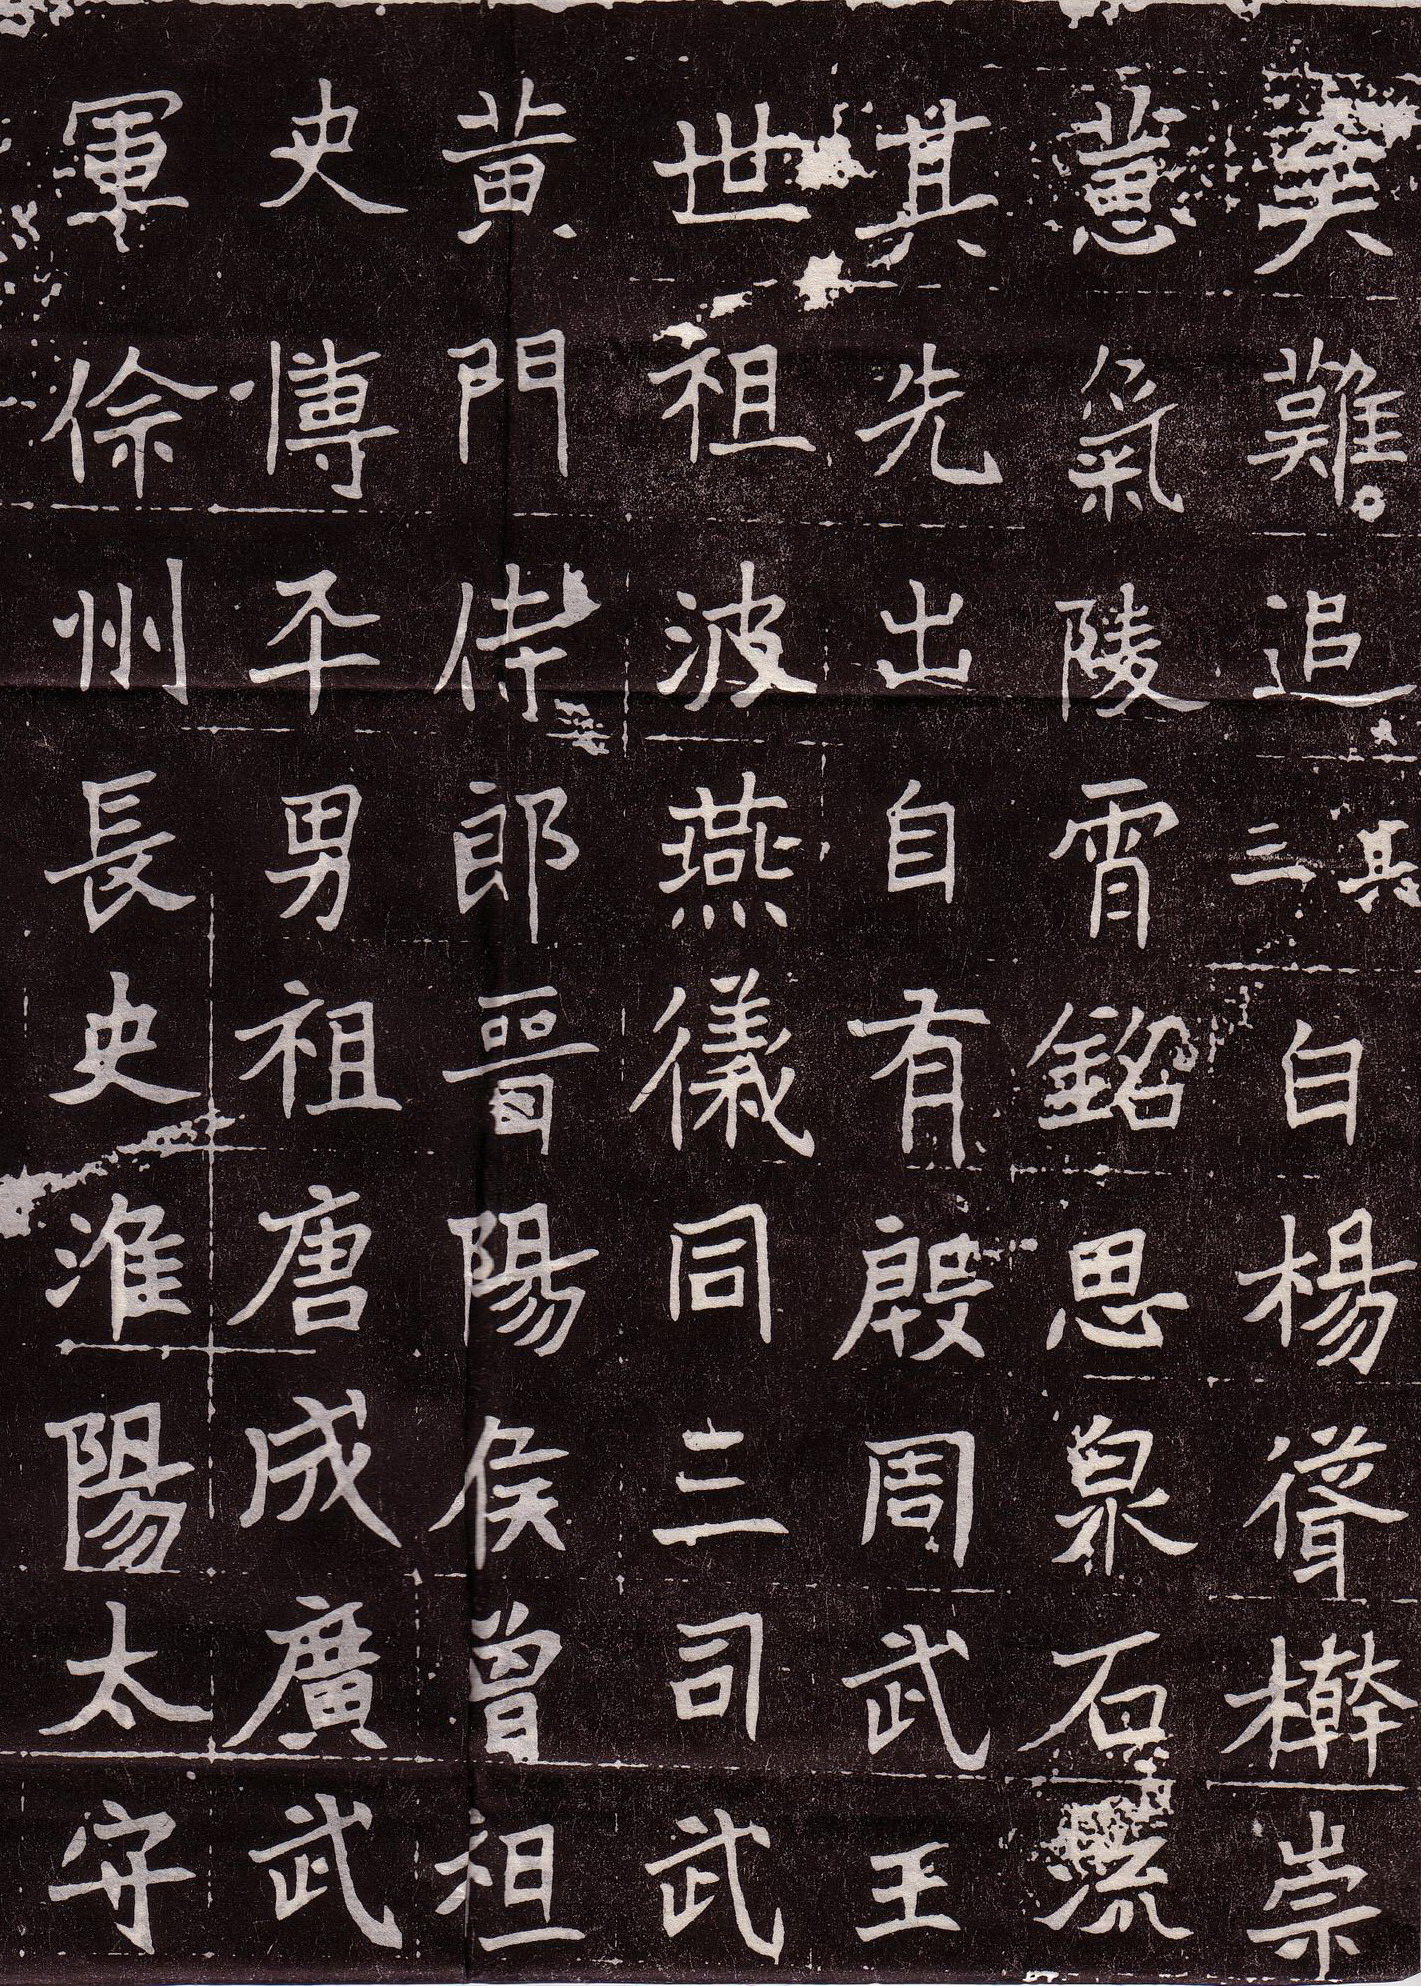 奚難追其三白楊聳檊崇
蕙氣陵霄銘思泉石流
其先出自有殷周武王
世祖波燕儀同三司武
黃門侍郎晉陽侯曾祖
史博平男祖唐成廣武
軍徐州長史淮陽太守